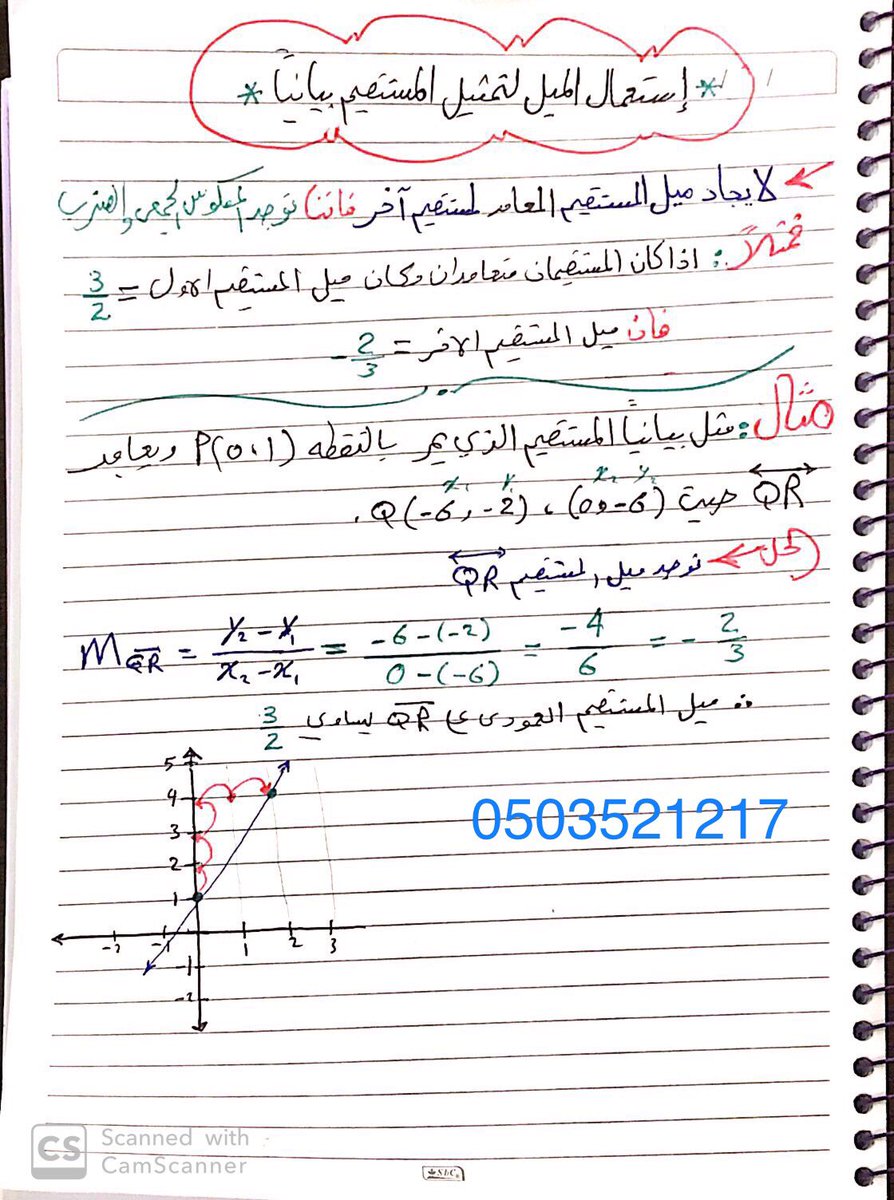 * إستعمال الميل لتمثيل المستقيم بيانياً *
لايجاد ميل المستقيم المعامد لمستقيم آخر فاننا نوجد المعكوس الجمعي والضرب
فمثلاً : اذا كان المستقيمان متعامدان وكان ميل المستقيم الاول = 3/2
فان ميل المستقيم الاخر = -2/3
مثال : مثل بيانياً المستقيم الذي يمر بالنقطه P(0،1) ويعامد
x₁ y₁ x₂ y₂
QR حيث Q(-6, -2) ، (0, -6) .
الحل نوجد ميل المستقيم QR
M QR = y₂ - y₁ / x₂ - x₁ = -6-(-2) / 0-(-6) = -4/6 = -2/3
∴ ميل المستقيم العمودي ع QR يساوي 3/2
5
4
3
2
1
-2 -1 1 2 3
-1
-2
0503521217
CS Scanned with
CamScanner